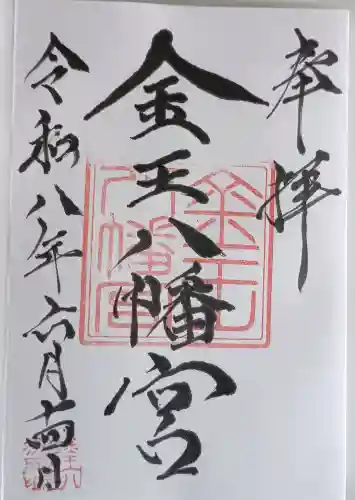 奉拝
金王八幡宮
令和八年六月十四日
金王八幡宮